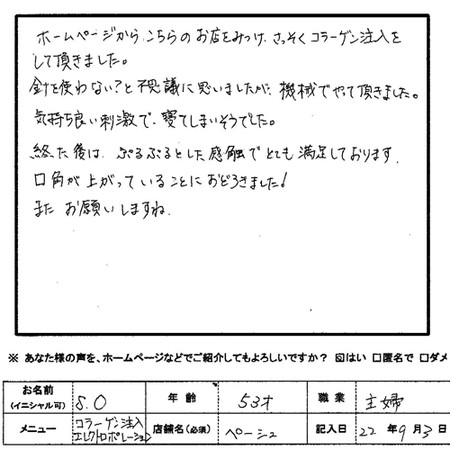 ホームページから、こちらのお店をみつけ、さっそくコラーゲン注入を
して頂きました。
針を使わない?と不思議に思いましたが、機械でやって頂きました。
気持ち良い刺激で、寝てしまいそうでした。
終た後は、ぷるぷるとした感触でとても満足しております。
口角が上がっていることにおどろきました!
またお願いしますね。
※ あなた様の声を、ホームページなどでご紹介してもよろしいですか? ☑はい □匿名で □ダメ
お名前 (イニシャル可) S.O 年齢 53才 職業 主婦
メニュー コラーゲン注入 エレクトロポレーション 店舗名(必須) ペーシュ 記入日 22年9月3日